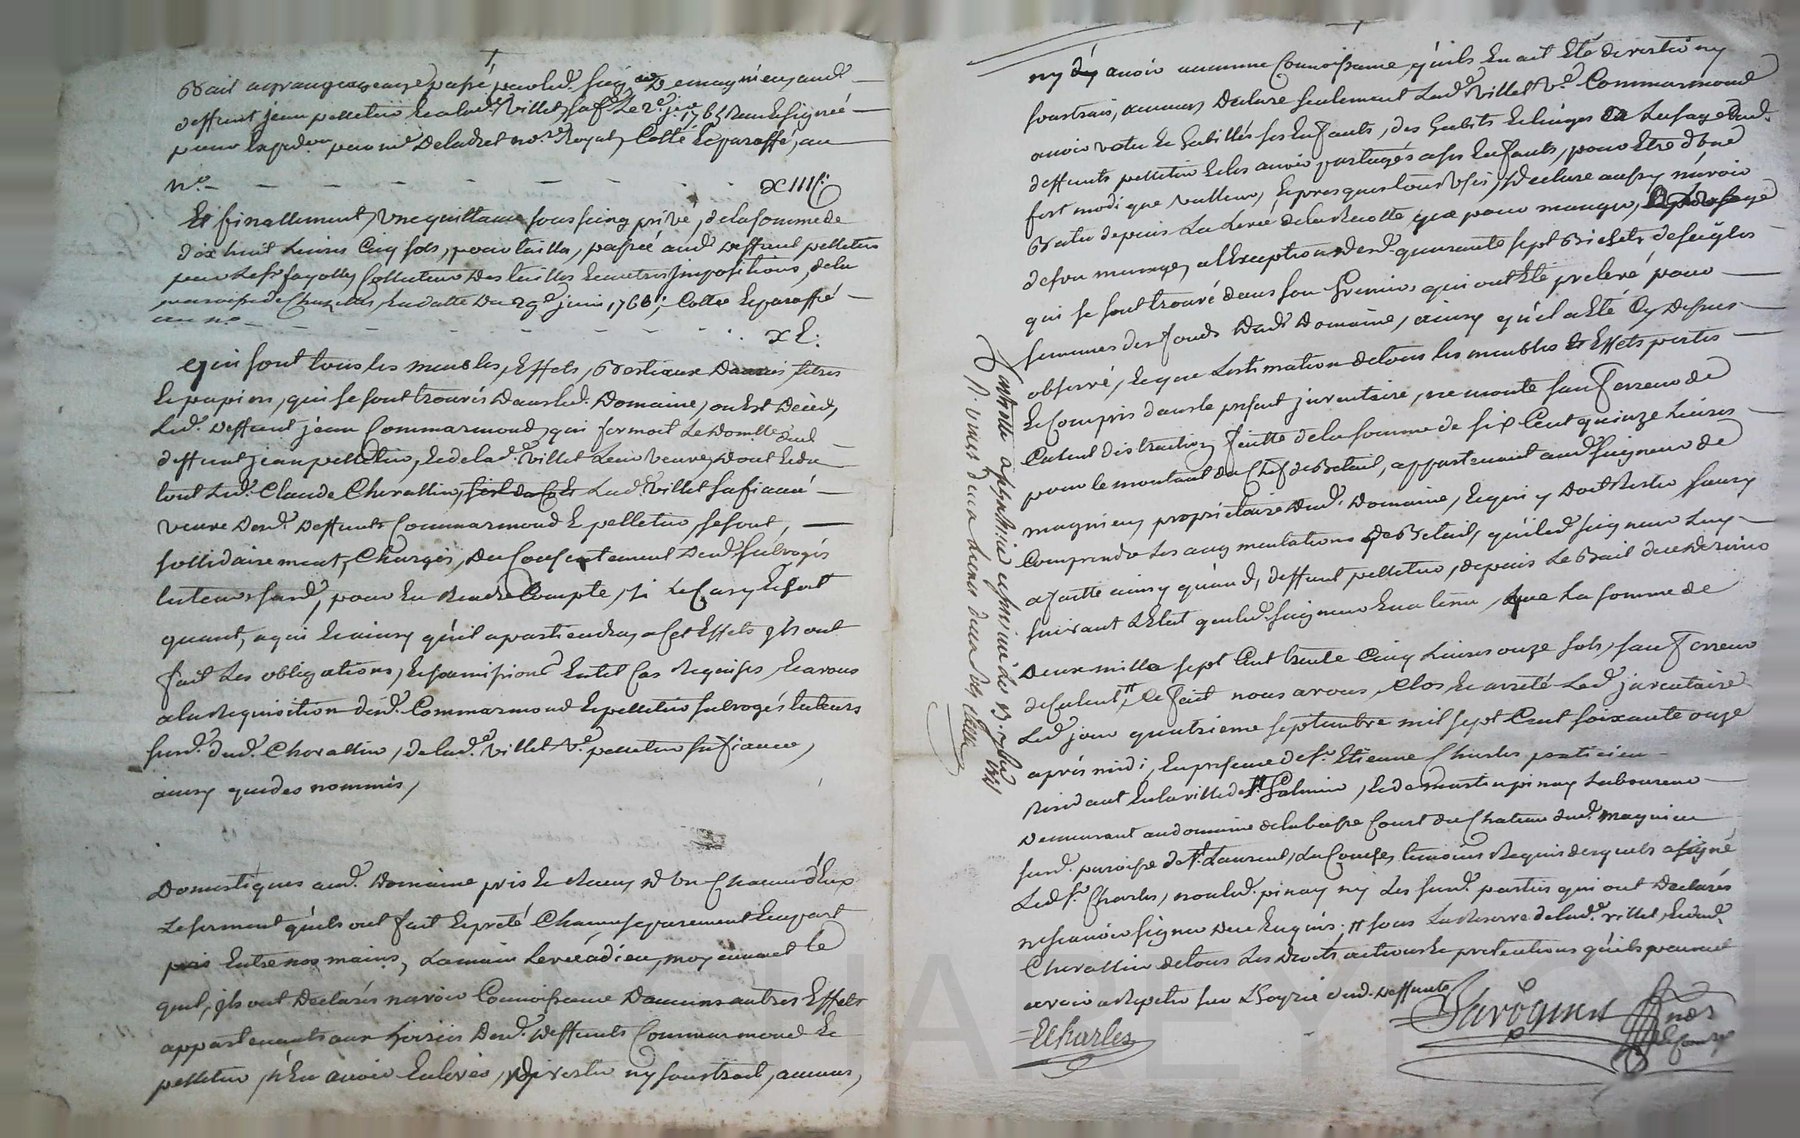 Bail a grangeage passé par led. seigr. de magnieu aud.
deffunt jean pelletier et a lad. villet sa fe. le 2e. 1765
pour expedon. par me Deladret nore. Royal, Cotté et paraffé, au
n°. - - - - - - - xIIII.
Et finallement, une quittance sous seing privé, de la somme de
dix huit Livres Cinq sols, pour tailles, passée aud. deffunt pelletier
par fayolle Collecteur des tailles et autres Impositions, de la
parroisse de Chazelles, en datte du 29e. juin 1766, Cotté et paraffé
au n° - - - - - x L.
qui sont tous les meubles, Effets, Bestiaux titres
et papiers, qui se sont trouvés dans led. Domaine, ou Est décédé
Led. deffunt jean Commarmond, qui formoit le dud.
deffunt jean pelletier, et de lad. villet leur veuve, dont et du
tout led. Claude Chevallier, Lad. villet sa fiancée
veuve desd. deffunts Commarmond et pelletier, se sont,
sollidairement, Chargés, du Consentement desd. subrogés
tuteurs susd., pour en rendre Compte, si le Cas y Echoit
quant, a qui et ainsy qu'il apartiendra, a Cet Effets ils ont
fait les obligations, et soumissions En tel Cas Requises, et avons
a la Requisition desd. Commarmond et pelletier subrogés tuteurs
susd. dud. Chevallier, de lad. villet ve. pelletier sa fiancée,
ainsy que des nommés,
Domestiques aud. Domaine pris et Reçu d'un Chacun d'Eux
Le serment qu'ils ont fait et preté Chacun separement et apart
Entre nos mains, La main Levée a dieu, moyennant le
quel, ils ont Declarés n'avoir Connoissance D'aucuns autres Effets
appartenants aux hoiries desd. deffunts Commarmond et
pelletier, n'En avoir Enlevés, diverti ny soustrait, aucuns,
ny avoir aucunne Connoissance, qu'ils En ait Eté diverti ny
soustrais, aucuns, Declare seulement Lad. villet ve. Commarmond
avoir vetu et habillés ses Enfants, des habits et linges a L'usage dud.
deffunts pelletier et les avoir partagés a ses Enfants, pour Etre d'une
fort modique valleur, et presque tous usés, Declare aussy n'avoir
Battu depuis La Levée de la Recolte, que pour manger,
de son menage, a l'Exception desd. quarante sept Bichets de seigle
qui se sont trouvé dans son Grenier, qui ont Eté prelevé pour
semences des fonds dud. Domaine, ainsy qu'il a Eté Cy Dessus
observé, et que L'estimation de tous les meubles et Effets portés
et Compris dans le present inventaire, ne monte sauf Erreur de
Calcul distraction faitte de la somme de six Cent quinze Livres
pour le montant du Chef de Betail, appartenant aud. seigneur de
magnieu, propriétaire dud. Domaine, et qui y doit Rester sans y
Comprendre les augmentations de Betail, qu'il led. seigneur luy
a faitte ainsy qu'aud. deffunt pelletier, depuis le Bail
suivant L'Etat que led. seigneur En a tenu, que La somme de
Deux mille sept Cent trente Cinq Livres onze sols, sauf Erreur
de Calcul, Ce fait nous avons Clos et arreté Led. inventaire
Led. jour quatrieme septembre mil sept Cent soixante onze
aprés midi, En presence de sr. Etienne Charles praticien
Residant En la ville de st. Galmier, et de martin pinay Laboureur
Demeurant au domaine de la basse Court du Chateau dud. magnieu
susd. paroisse de st. Laurent la Conche, temoins Requis desquels a signé
Led. sr. Charles, non led. pinay ny les susd. parties qui ont Declarés
ne sçavoir signer de ce Enquis, sous La Reserve de lad. villet, et dud.
Chevallier de tous Les droits actions et pretentions qu'ils peuvent
avoir a Repeter sur L'hoyrie dud. deffunt
ECharles